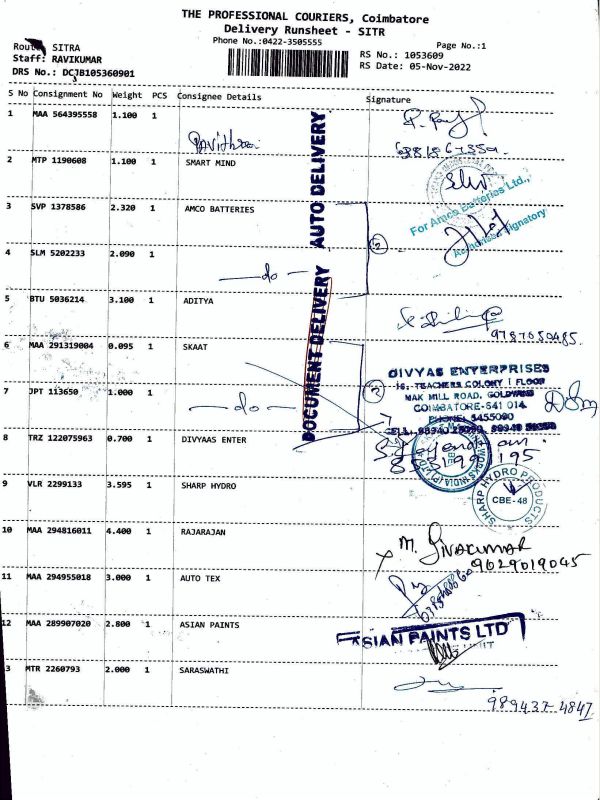 THE PROFESSIONAL COURIERS, Coimbatore
Delivery Runsheet - SITR
Phone No.:0422-3505555
Page No.:1
Route SITRA
Staff: RAVIKUMAR
DRS No.: DCJB105360901
RS No.: 1053609
RS Date: 05-Nov-2022
S No Consignment No Weight PCS Consignee Details Signature
1 MAA 564395558 1.100 1
2 MTP 1190608 1.100 1 SMART MIND
3 SVP 1378586 2.320 1 AMCO BATTERIES
For Amco Batteries Ltd.,
Authorised Signatory
4 SLM 5202233 2.090 1 —do—
5 BTU 5036214 3.100 1 ADITYA
9787050485.
6 MAA 291319004 0.095 1 SKAAT
7 JPT 113650 1.000 1 —do—
DIVYAS ENTERPRISES
16, TEACHERS COLONY I FLOOR
MAK MILL ROAD, GOLDWINS
COIMBATORE-641 014
PHONE: 5455090
8 TRZ 122075963 0.700 1 DIVYAAS ENTER
9 VLR 2299133 3.595 1 SHARP HYDRO
SHARP HYDRO PRODUCTS
CBE-48
10 MAA 294816011 4.400 1 RAJARAJAN
M. SIVAKUMAR
9029019045
11 MAA 294955018 3.000 1 AUTO TEX
12 MAA 289907020 2.800 1 ASIAN PAINTS
ASIAN PAINTS LTD
3 MTR 2260793 2.000 1 SARASWATHI
989437-4847
DOCUMENT DELIVERY AUTO DELIVERY